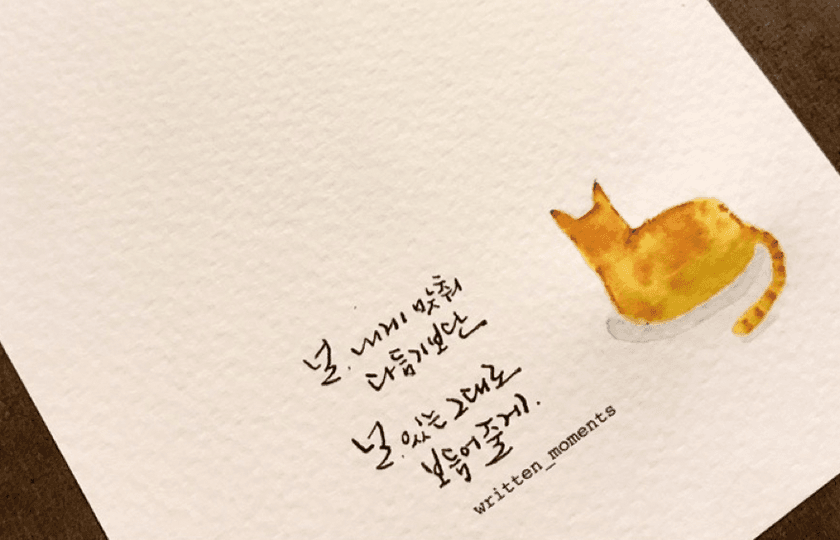 널. 내게 맞춰
다듬기보단
널. 있는 그대로
보듬어줄게.
written_moments